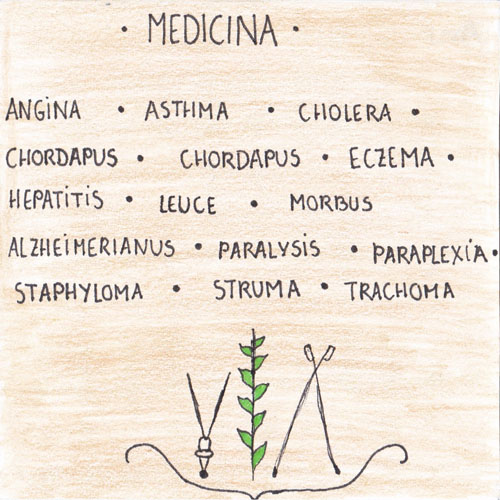 · MEDICINA ·
ANGINA · ASTHMA · CHOLERA ·
CHORDAPUS · CHORDAPUS · ECZEMA ·
HEPATITIS · LEUCE · MORBUS
ALZHEIMERIANUS · PARALYSIS · PARAPLEXIA ·
STAPHYLOMA · STRUMA · TRACHOMA